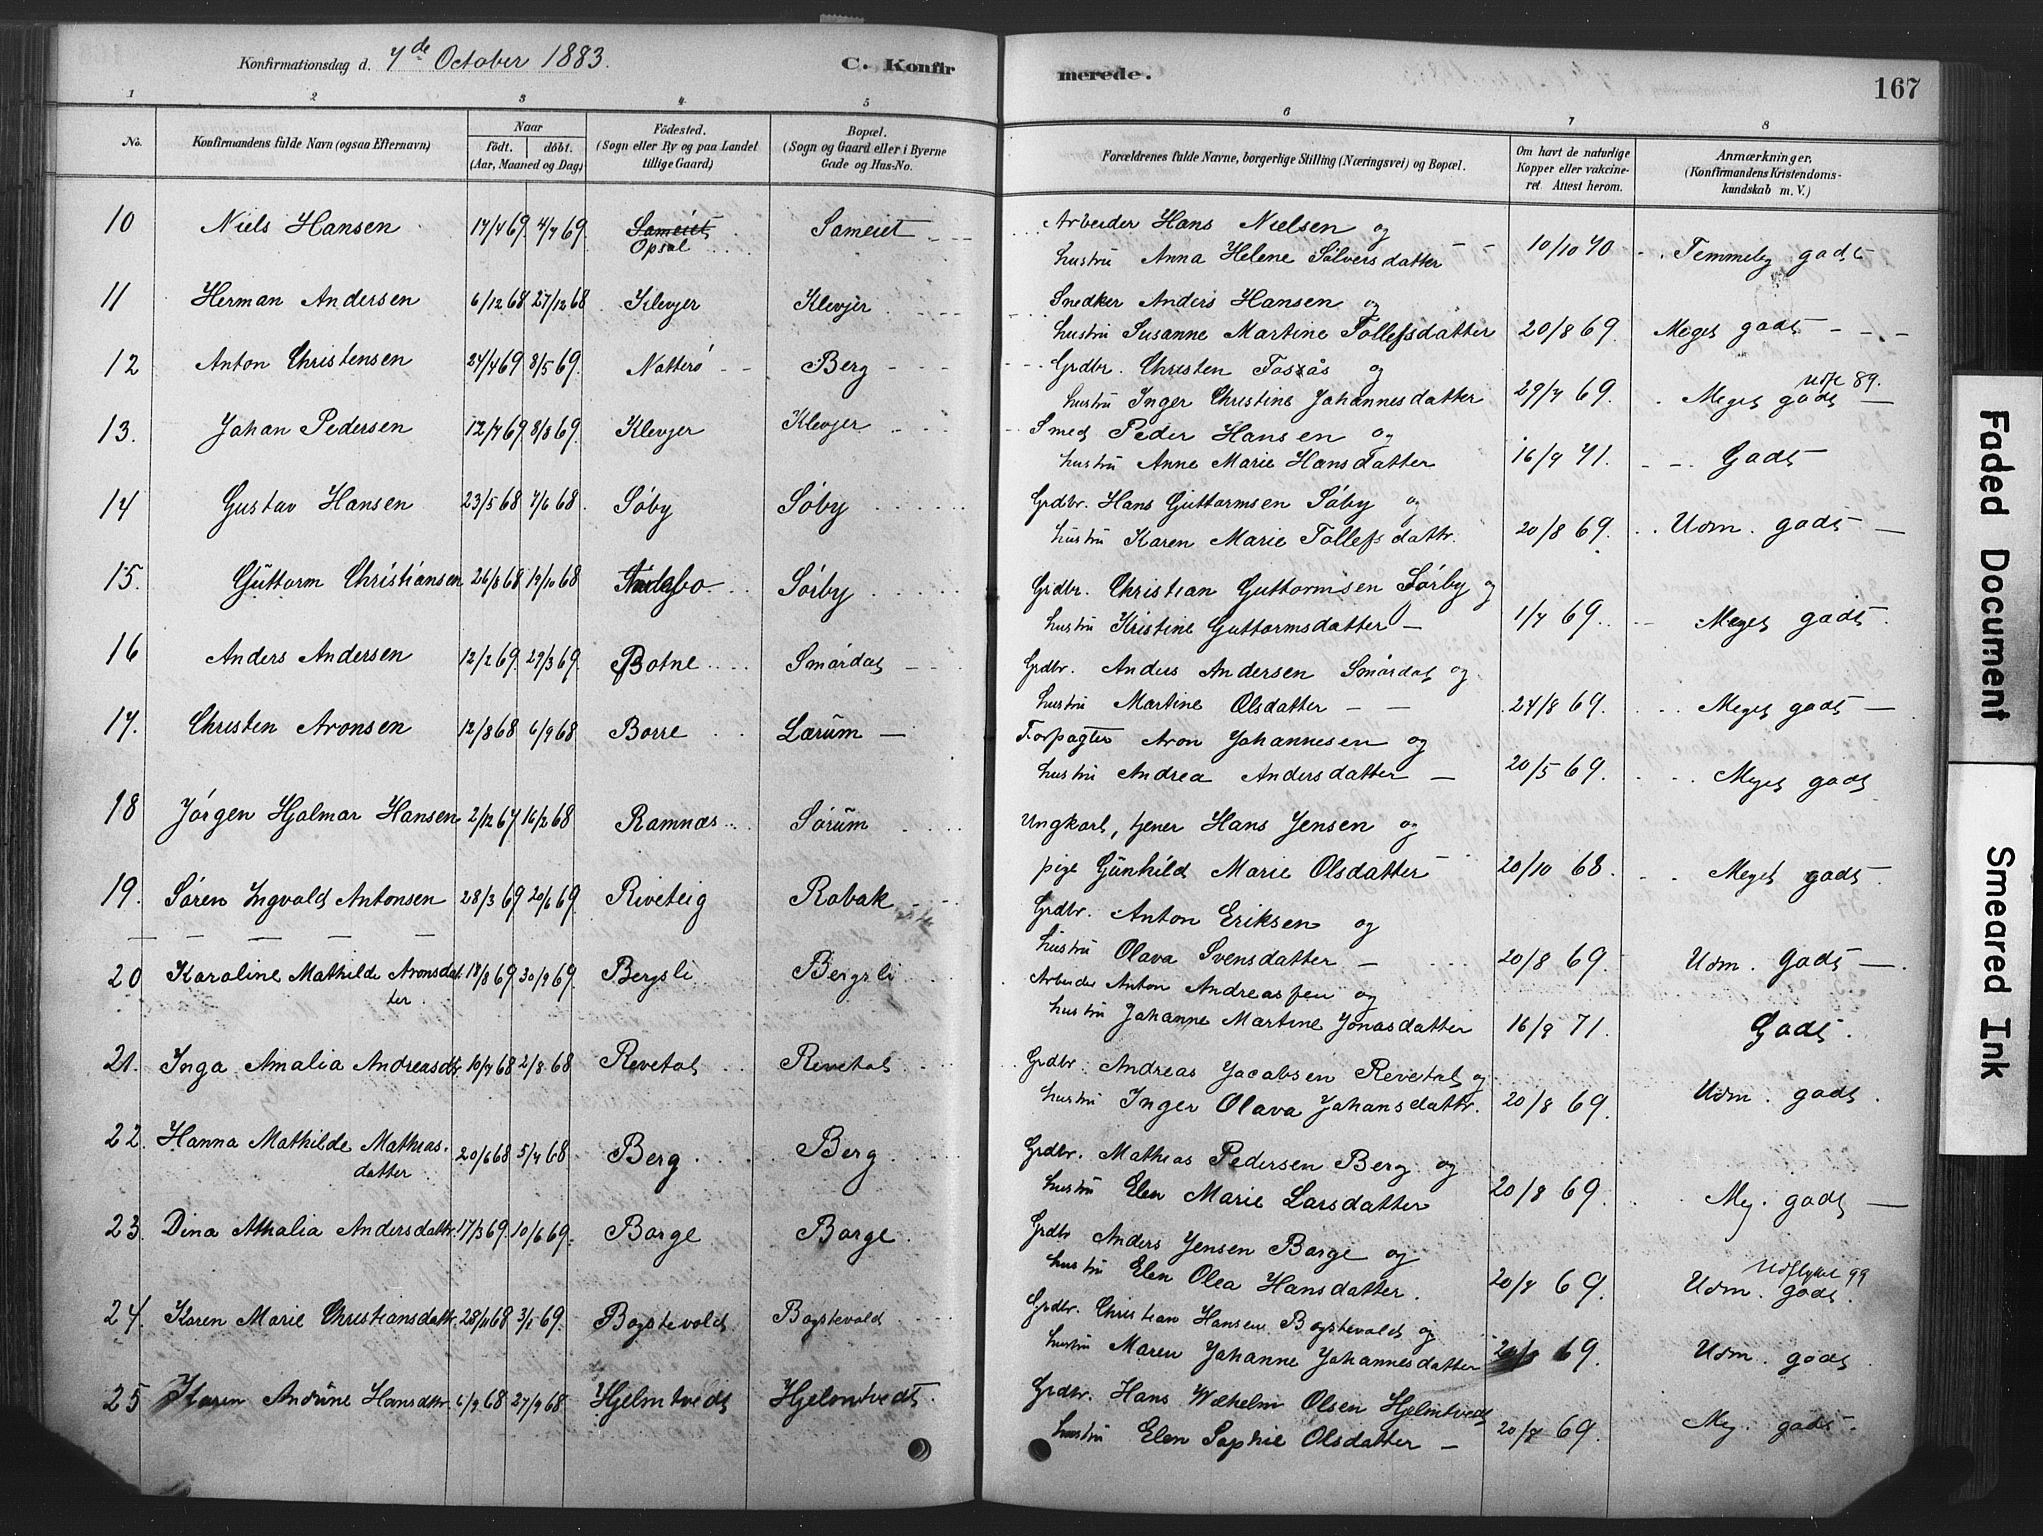 Konfirmationsdag d. 7de October 1883.
C. Konfirmerede.
167
1 2 3 4 5 6 7 8
No. Konfirmandens fulde Navn (ogsaa Efternavn) Naar födt. döbt. (Aar, Maaned og Dag) Födested. (Sogn eller By og paa Landet tillige Gaard) Bopæl. (Sogn og Gaard eller i Byerne Gade og Hus-No. Forældrenes fulde Navne, borgerlige Stilling (Næringsvei) og Bopæl. Om havt de naturlige Kopper eller vakcineret Attest herom. Anmærkninger, (Konfirmandens Kristendomskundskab m. V.)
10 Niels Hansen 17/4 69 4/7 69 Sameiet Opsal Sameiet Arbeider Hans Nielsen og
hustru Anna Helene Sølversdatter 10/10 70 Temmelig godt
11 Herman Andersen 6/12 68 27/12 68 Klevjer Klevjer Snedker Anders Hansen og
hustru Susanne Martine Tollefsdatter 20/8 69 Meget godt
12 Anton Christensen 24/4 69 8/5 69 Nøtterö Berg Grdbr. Christen Fosås og
hustru Inger Christine Johannesdatter 29/7 69. Meget godt Udfl 89.
13. Johan Pedersen 12/7 69 8/8 69. Klevjer Klevjer Smed Peder Hansen og
hustru Anne Marie Hansdatter 16/9 71. Godt
14 Gustav Hansen 23/5 68 7/6 68. Søby Søby Grdbr. Hans Guttormsen Søby og
hustru Karen Marie Tollefsdattr. 20/8 69. Udm. godt
15. Guttorm Christiansen 26/8 68 19/10 68 Andebo Sørby Grdbr. Christian Guttormsen Sørby og
hustru Kristine Guttormsdatter 1/7 69. Meget godt.
16 Anders Andersen 12/2 69. 29/3 69. Botne Smørdal Grdbr. Anders Andersen Smørdal og
hustru Martine Olsdatter 24/8 69. Meget godt
17. Christen Aronsen 12/8 68 6/9 68 Borre Lærum Forpagter Aron Johannesen og
hustru Andrea Andersdatter 20/5 69. Meget godt
18 Jørgen Hjalmar Hansen 2/12 67 16/2 68 Ramnæs Sørum Ungkarl, tjener Hans Jensen og
pige Gunhild Marie Olsdatter 20/10 68. Meget godt.
19. Søren Ingvald Antonsen 28/3 69 20/6 69. Riveteig Robak Grdbr. Anton Eriksen og
hustru Olava Svensdatter 20/8 69. Udm. godt
20 Karoline Mathilde Aronsdatter. 18/8 69 30/9 69. Bergsli Bergsli Arbeider Anton Andreassen og
hustru Johanne Martine Jonasdatter 16/9 71. Godt.
21. Inga Amalia Andreasdtr 10/7 68 2/8 68 Revetal Revetal Grdbr. Andreas Jacobsen Revetal og
hustru Inger Olava Johansdattr. 20/8 69. Udm. godt.
22. Hanna Mathilde Mathiasdatter 20/6 68 5/7 68 Berg Berg Grdbr. Mathias Pedersen Berg og
hustru Elen Marie Larsdatter 20/8 69. Meg. godt
23. Dina Athalia Andersdattr. 17/3 69. 10/6 69. Borge Borge. Grdbr Anders Jensen Borge og
hustru Elen Olea Hansdatter. 20/8 69. Udm. godt. Udflyttet 99
24. Karen Marie Christiansdattr. 28/11 68 3/1 69. Bogstevold Bogstevold Grdbr. Christian Hansen Bogstevold og
hustru Maren Johanne Johannesdatter 20/8 69. Udm. godt.
25 Karen Andrine Hansdtr. 6/9 68 27/9 68 Hjelmtvedt Hjelmtvedt. Grdbr. Hans Wilhelm Olsen Hjelmtvedt
hustru Elen Sophie Olsdatter 20/8 69. Meg. godt.
Faded Document
Smeared Ink